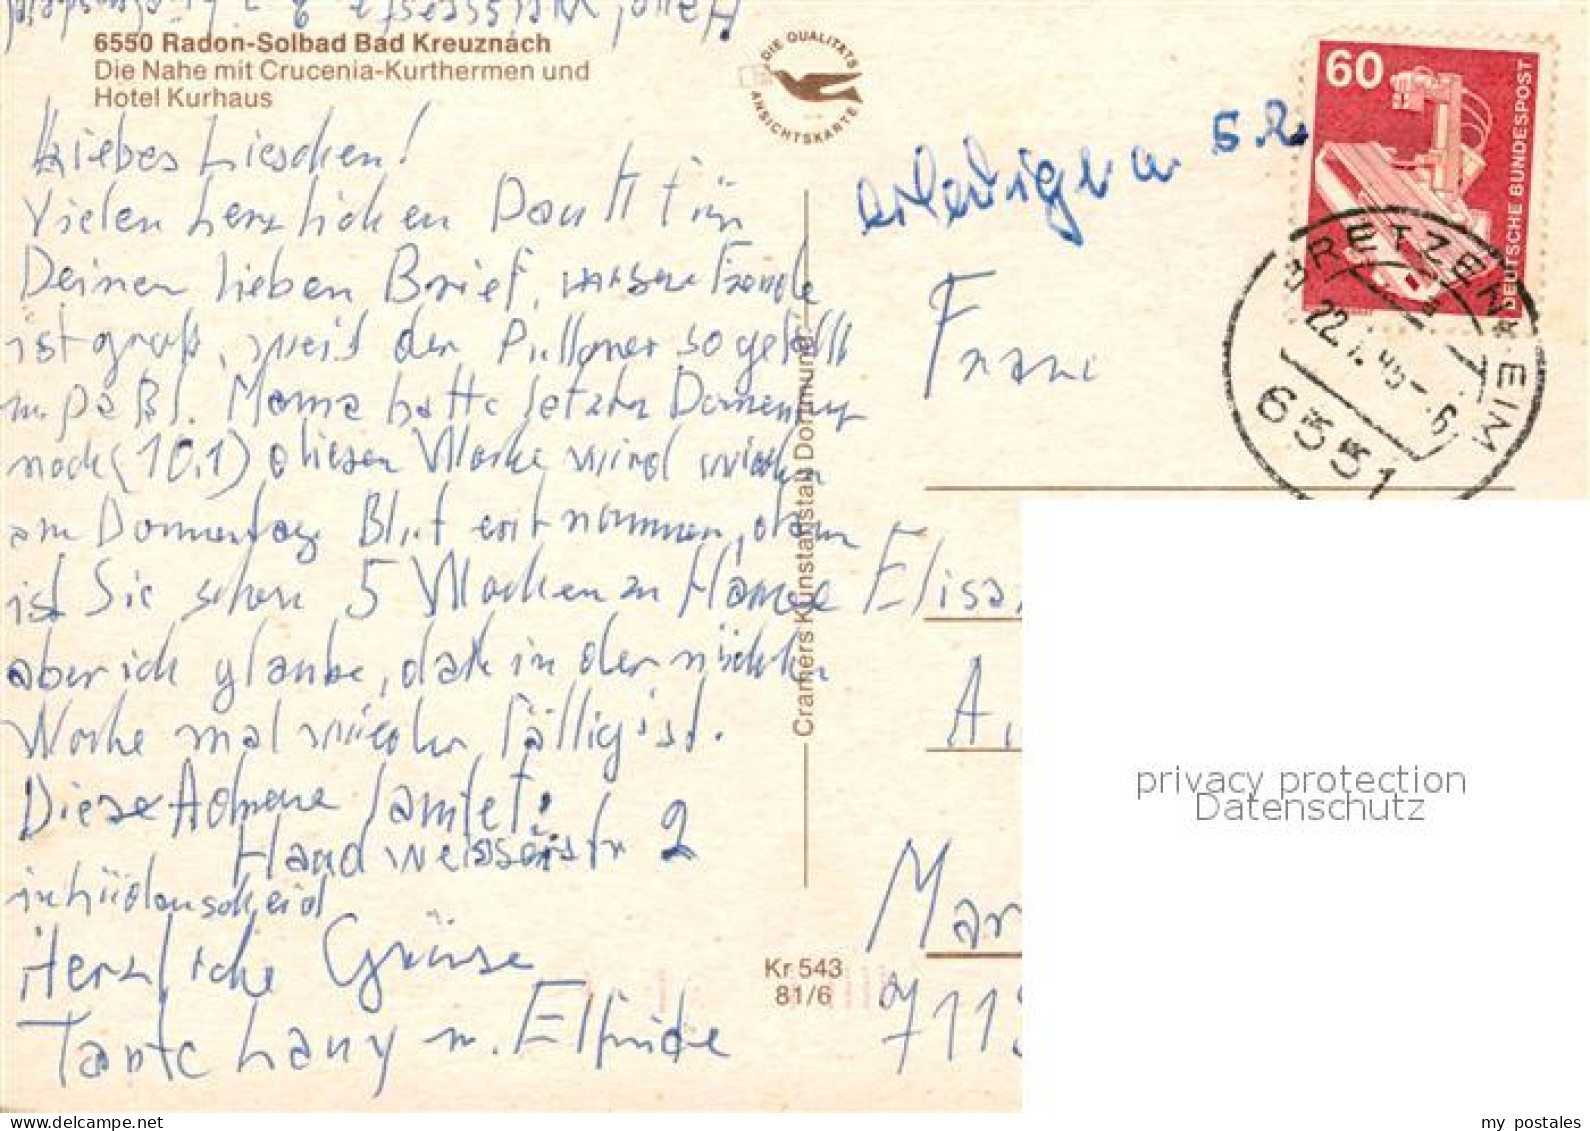 6550 Radon-Solbad Bad Kreuznach
Die Nahe mit Crucenia-Kurthermen und
Hotel Kurhaus
Liebes Lieschen!
Vielen herzlichen Dank für
Deinen lieben Brief, unsere Freude
ist groß, weil der Pullover so gefällt
u. paßt. Mama hatte letzten Donnerstag
noch (10.1) diesen Woche wird wieder
am Donnerstag Blut entnommen, dann
ist Sie schon 5 Wochen zu Hause
aber ich glaube, daß in der nächsten
Woche mal wieder fällig ist.
Diese Adresse lautet:
2
in Lüdenscheid
Herzliche Grüsse
Tante Lany u. Elfriede
DIE QUALITÄTS
ANSICHTSKARTE
Cramers Kunstanstalt Dortmund
Kr 543
81/6
60
DEUTSCHE BUNDESPOST
BRETZENHEIM
6551
Frau
Elisa
A
Mar
711
privacy protection
Datenschutz
my postales